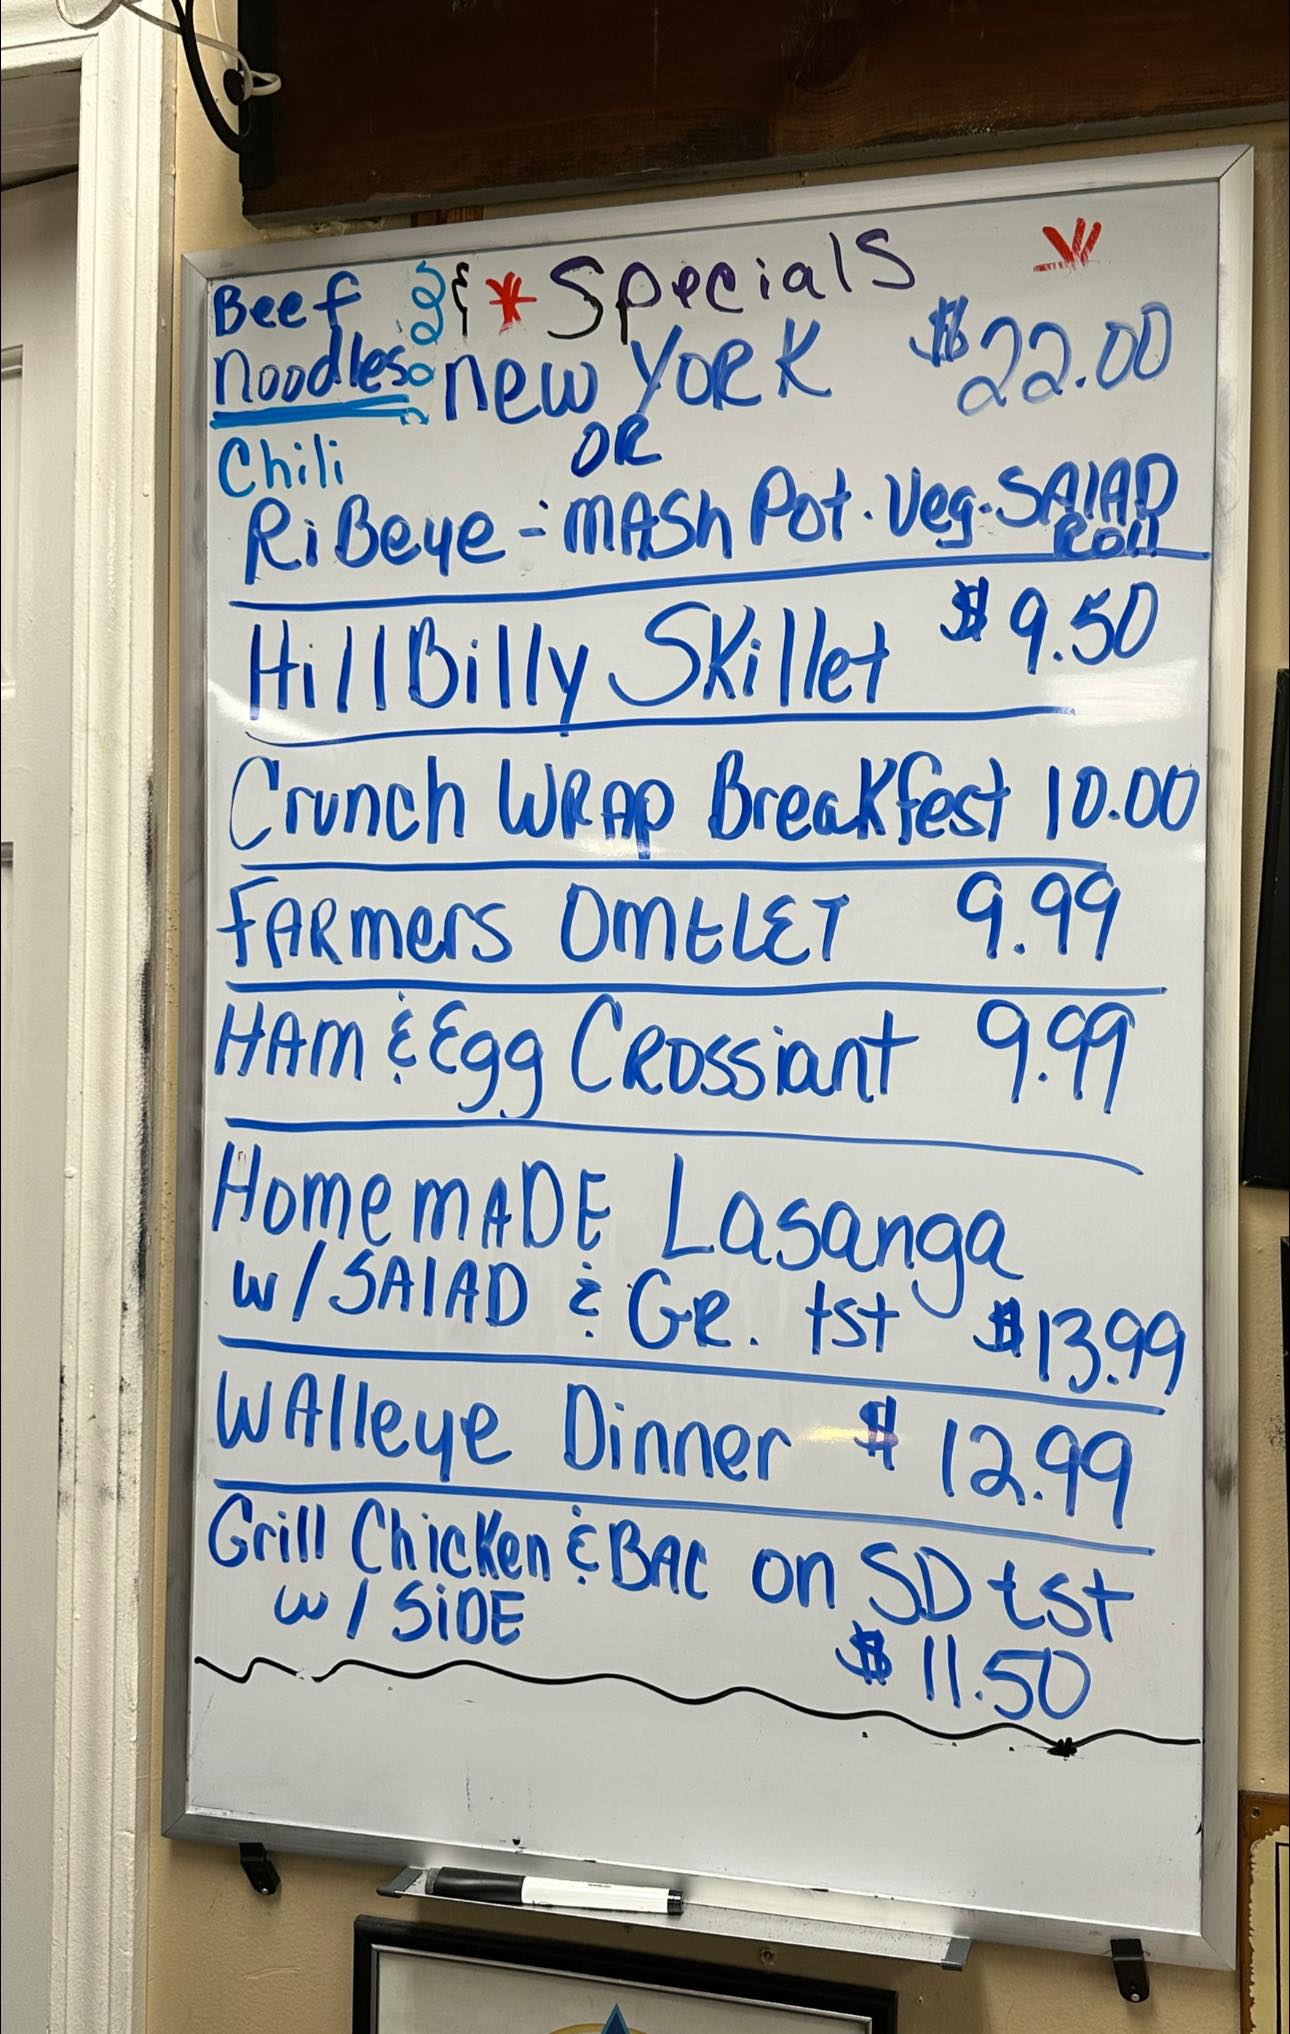 Beef & * Specials
Noodles New York $22.00
Chili OR
RiBeye - MASh Pot. Veg. SAlAD
Roll
HillBilly Skillet $9.50
Crunch WRAP Breakfest 10.00
FARmers OmELET 9.99
HAm & Egg CRossiant 9.99
HomemADE Lasanga
w/ SAlAD & GR. tst $13.99
WAlleye Dinner $12.99
Grill Chicken & BAC on SD tst
w/ SiDE
$11.50